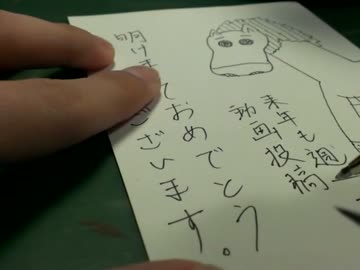 明けましておめでとう
ございます。
来年も週
動画投稿